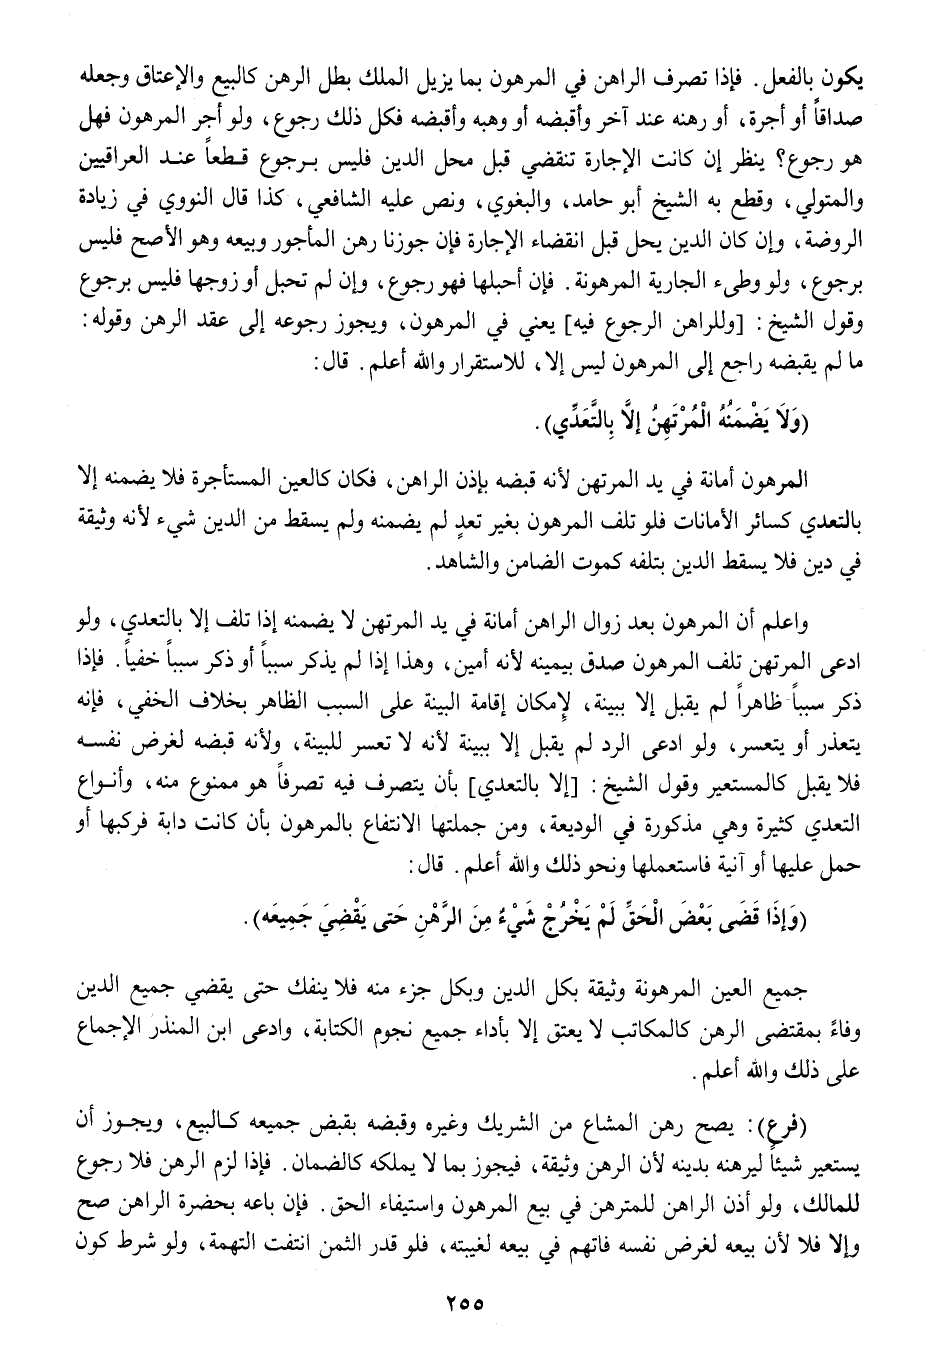 يكون بالفعل. فإذا تصرف الراهن في المرهون بما يزيل الملك بطل الرهن كالبيع والإعتاق وجعله
صداقاً أو أجرة، أو رهنه عند آخر وأقبضه أو وهبه وأقبضه فكل ذلك رجوع، ولو أجر المرهون فهل
هو رجوع؟ ينظر إن كانت الإجارة تنقضي قبل محل الدين فليس برجوع قطعاً عند العراقيين
والمتولي، وقطع به الشيخ أبو حامد، والبغوي، ونص عليه الشافعي، كذا قال النووي في زيادة
الروضة، وإن كان الدين يحل قبل انقضاء الإجارة فإن جوزنا رهن المأجور وبيعه وهو الأصح فليس
برجوع، ولو وطىء الجارية المرهونة. فإن أحبلها فهو رجوع، وإن لم تحبل أو زوجها فليس برجوع
وقول الشيخ: [وللراهن الرجوع فيه] يعني في المرهون، ويجوز رجوعه إلى عقد الرهن وقوله:
ما لم يقبضه راجع إلى المرهون ليس إلا، للاستقرار والله أعلم. قال:
(وَلَا يَضْمَنُهُ الْمُرْتَهِنُ إِلَّا بِالتَّعَدِّي).
المرهون أمانة في يد المرتهن لأنه قبضه بإذن الراهن، فكان كالعين المستأجرة فلا يضمنه إلا
بالتعدي كسائر الأمانات فلو تلف المرهون بغير تعدٍ لم يضمنه ولم يسقط من الدين شيء لأنه وثيقة
في دين فلا يسقط الدين بتلفه كموت الضامن والشاهد.
واعلم أن المرهون بعد زوال الراهن أمانة في يد المرتهن لا يضمنه إذا تلف إلا بالتعدي، ولو
ادعى المرتهن تلف المرهون صدق بيمينه لأنه أمين، وهذا إذا لم يذكر سبباً أو ذكر سبباً خفياً. فإذا
ذكر سبباً ظاهراً لم يقبل إلا ببينة، لإمكان إقامة البينة على السبب الظاهر بخلاف الخفي، فإنه
يتعذر أو يتعسر، ولو ادعى الرد لم يقبل إلا ببينة لأنه لا تعسر للبينة، ولأنه قبضه لغرض نفسه
فلا يقبل كالمستعير وقول الشيخ: [إلا بالتعدي] بأن يتصرف فيه تصرفاً هو ممنوع منه، وأنواع
التعدي كثيرة وهي مذكورة في الوديعة، ومن جملتها الانتفاع بالمرهون بأن كانت دابة فركبها أو
حمل عليها أو آنية فاستعملها ونحو ذلك والله أعلم. قال:
(وَإِذَا قَضَى بَعْضَ الْحَقِّ لَمْ يَخْرُجْ شَيْءٌ مِنَ الرَّهْنِ حَتى يَقْضِيَ جَمِيعَه).
جميع العين المرهونة وثيقة بكل الدين وبكل جزء منه فلا ينفك حتى يقضي جميع الدين
وفاءً بمقتضى الرهن كالمكاتب لا يعتق إلا بأداء جميع نجوم الكتابة، وادعى ابن المنذر الإجماع
على ذلك والله أعلم.
(فرع): يصح رهن المشاع من الشريك وغيره وقبضه بقبض جميعه كالبيع، ويجوز أن
يستعير شيئاً ليرهنه بدينه لأن الرهن وثيقة، فيجوز بما لا يملكه كالضمان. فإذا لزم الرهن فلا رجوع
للمالك، ولو أذن الراهن للمترهن في بيع المرهون واستيفاء الحق. فإن باعه بحضرة الراهن صح
وإلا فلا لأن بيعه لغرض نفسه فاتهم في بيعه لغيبته، فلو قدر الثمن انتفت التهمة، ولو شرط كون
٢٥٥